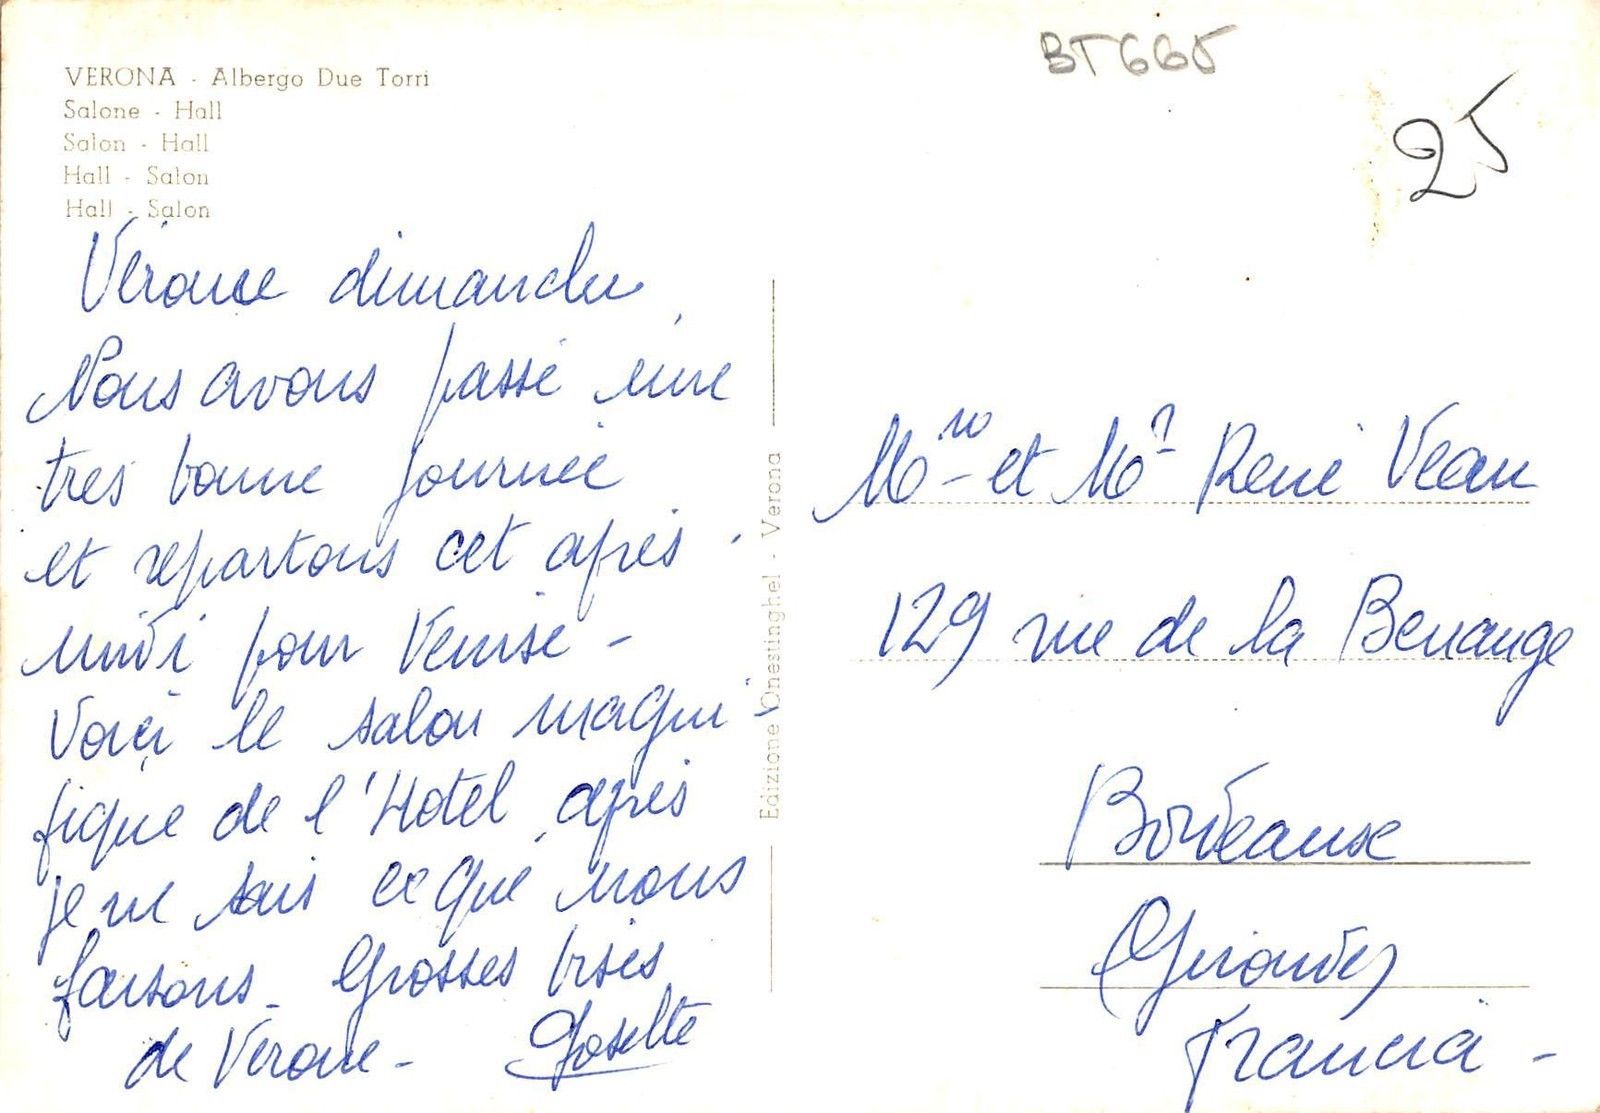 VERONA - Albergo Due Torri
Salone - Hall
Salon - Hall
Hall - Salon
Hall - Salon
BT665
25
Vérone dimanche
Nous avons passé une
tres bonne journée
et repartons cet après
midi pour Venise -
Voici le salon magni
fique de l'Hotel, après
je ne sais ce que nous
faisons - Grosses bises
de Vérone - Josette
Edizione Onestinghel - Verona
et Mr René Vean
129 rue de la Benauge
Bordeaux
(Gironde)
Francia -